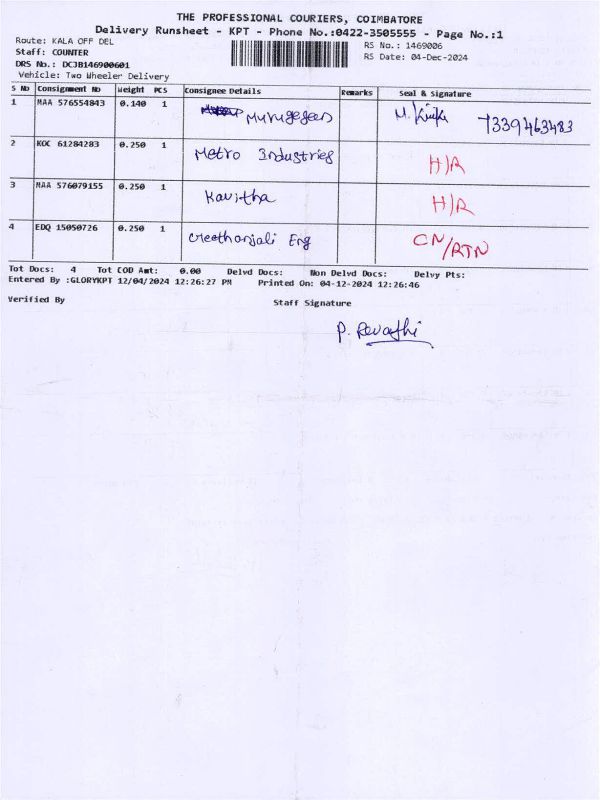 THE PROFESSIONAL COURIERS, COIMBATORE
Delivery Runsheet - KPT - Phone No.:0422-3505555 - Page No.:1
Route: KALA OFF DEL
RS No.: 1469006
Staff: COUNTER
RS Date: 04-Dec-2024
DRS No.: DCJB146900601
Vehicle: Two Wheeler Delivery
S No Consignment No Weight PCS Consignee Details Remarks Seal & Signature
1 MAA 576554843 0.140 1 Murugesan M. 7339463483
2 KOC 61284283 0.250 1 Metro Industries H/R
3 MAA 576079155 0.250 1 Kavitha H/R
4 EDQ 15050726 0.250 1 Geethanjali Eng CN/RTN
Tot Docs: 4 Tot COD Amt: 0.00 Delvd Docs: Non Delvd Docs: Delvy Pts:
Entered By :GLORYKPT 12/04/2024 12:26:27 PM Printed On: 04-12-2024 12:26:46
Verified By Staff Signature
P. Revathi